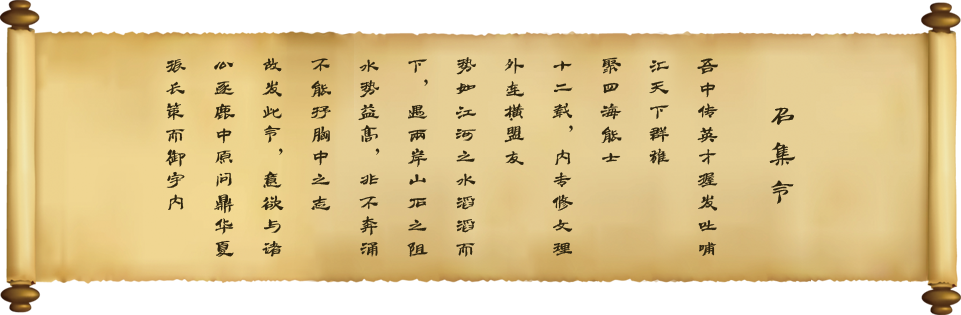 召集令
吾中传英才握发吐哺
汇天下群雄
聚四海能士
十二载，内专修文理
外连横盟友
势如江河之水滔滔而
下，遇两岸山石之阻
水势益高，非不奔涌
不能抒胸中之志
故发此令，意欲与诸
公逐鹿中原问鼎华夏
振长策而御宇内